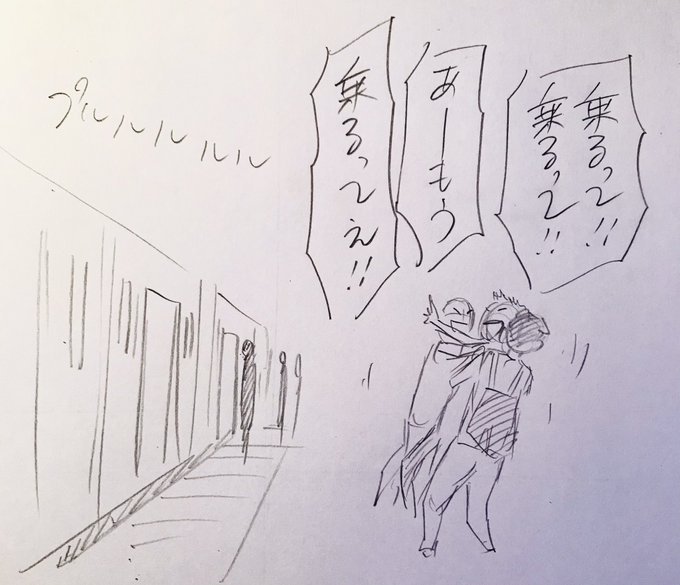 乗るって!!
乗るって!!
あーもう
乗るってぇ!!
プルルルルル